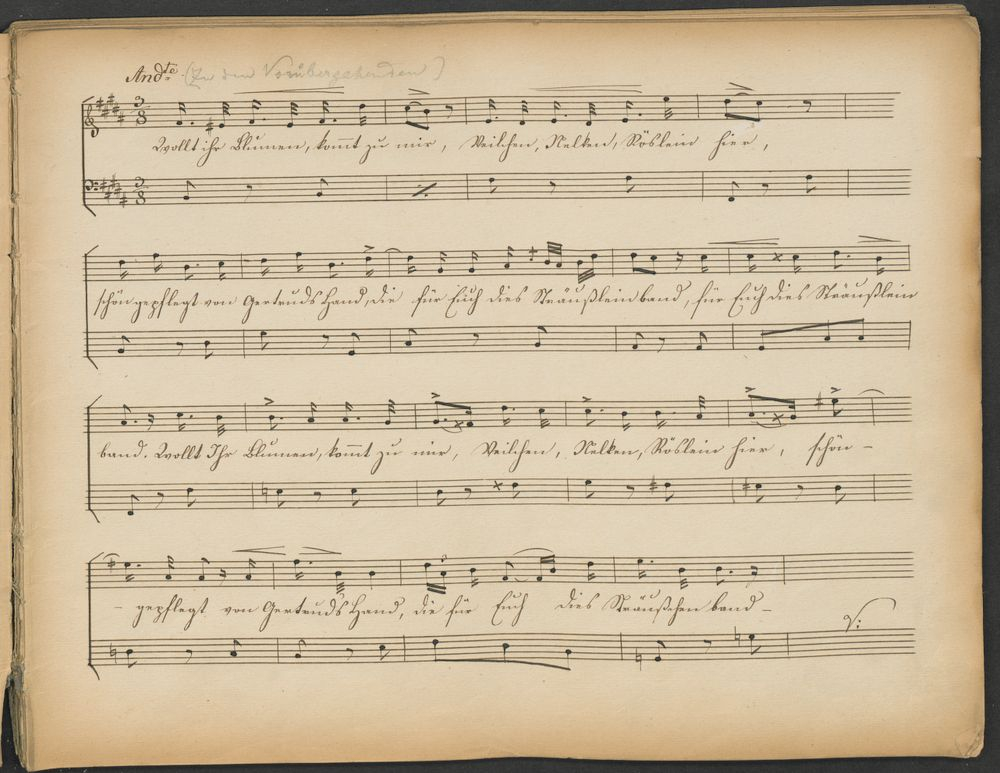 Andte (Zu den Vorübergehenden)
Wollt ihr Blumen, kommt zu mir, Veilchen, Nelken, Röslein hier,
schön gepflegt von Gertruds Hand, die für Euch dies Sträußlein band, für Euch dies Sträußlein
band. Wollt Ihr Blumen, kommt zu mir, Veilchen, Nelken, Röslein hier, schön –
– gepflegt von Gertrud's Hand, die für Euch dies Sträußchen band –
V: